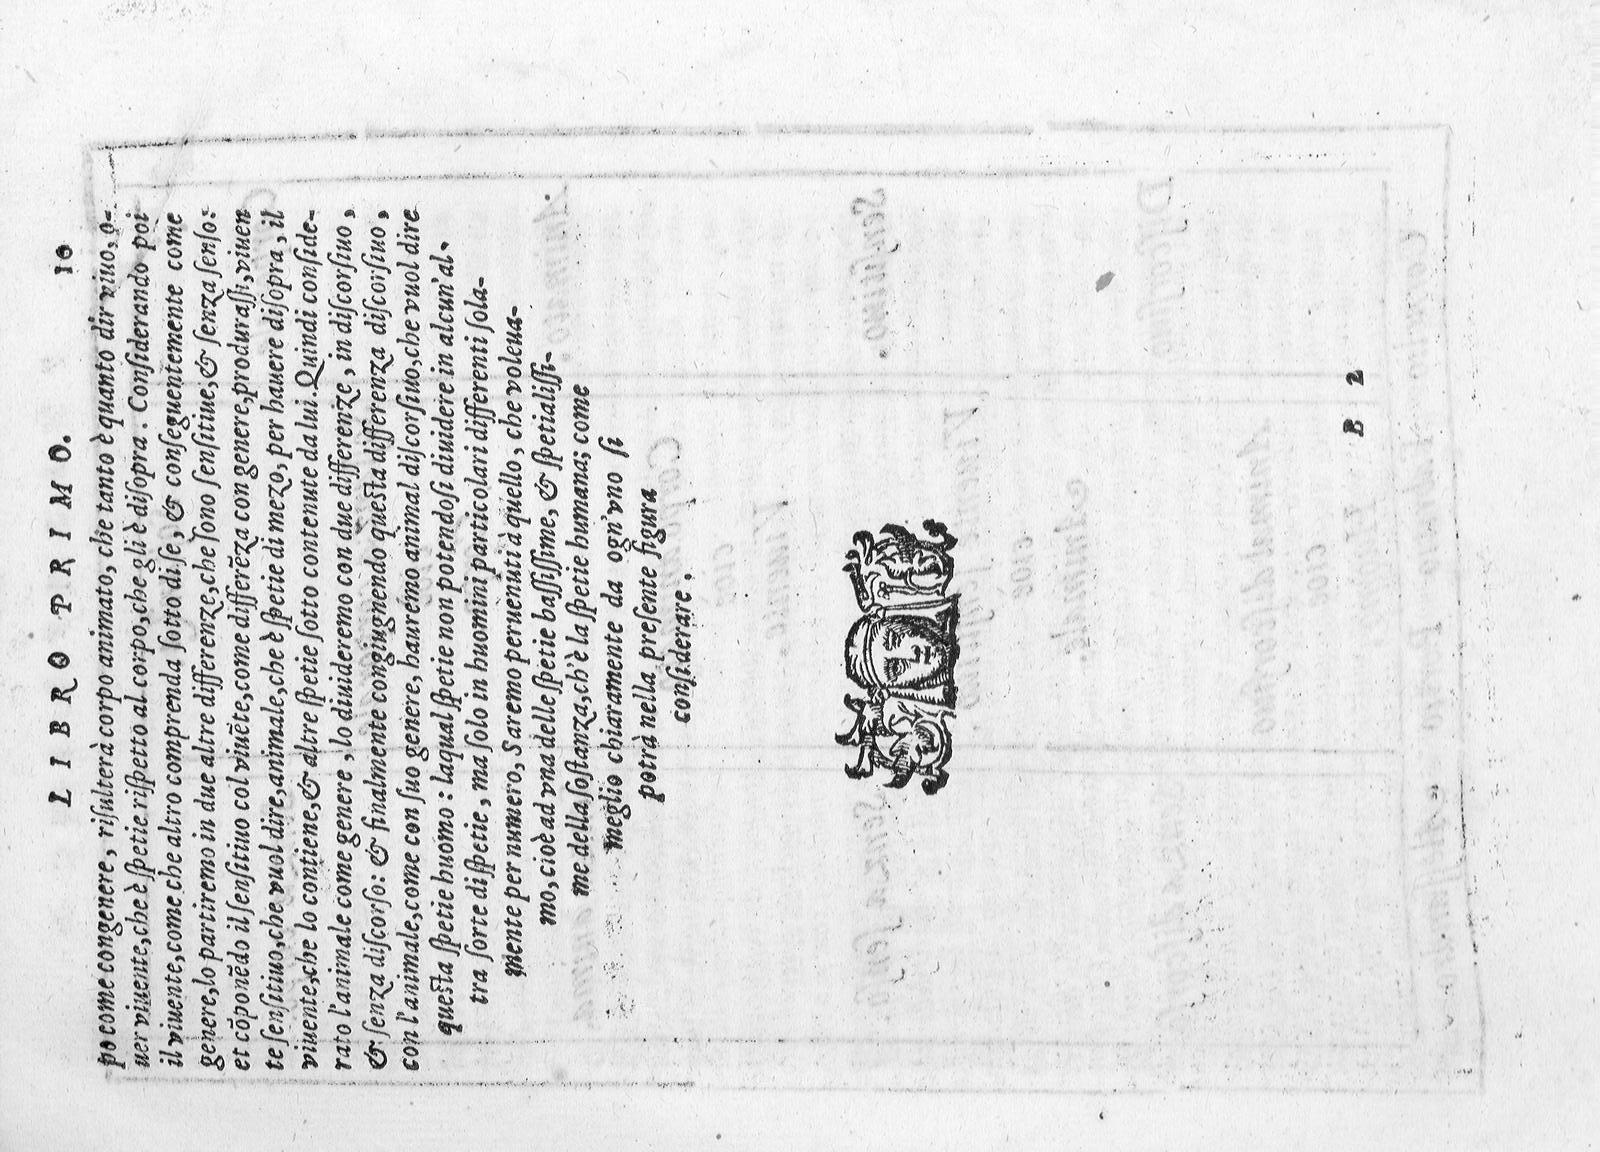 LIBRO PRIMO. 10
po come congenere, riſulterà corpo animato, che tanto è quanto dir viuo, o-
uer viuente, che è ſpetie riſpetto al corpo, che gli è diſopra. Conſiderando poi
il viuente, come che altro comprenda ſotto di ſe, & conſeguentemente come
genere, lo partiremo in due altre differenze, che ſono ſenſitiue, & ſenza ſenſo:
et cōponēdo il ſenſitiuo col viuēte, come differēza con genere, produraſſi, viuen
te ſenſitiuo, che vuol dire, animale, che è ſpetie di mezo, per hauere diſopra, il
viuente, che lo contiene, & altre ſpetie ſotto contenute da lui. Quindi conſide-
rato l'animale come genere, lo diuideremo con due differenze, in diſcorſiuo,
& ſenza diſcorſo: & finalmente congiugnendo queſta differenza diſcorſiuo,
con l'animale, come con ſuo genere, hauremo animal diſcorſiuo, che vuol dire
queſta ſpetie huomo: laqual ſpetie non potendoſi diuidere in alcun'al-
tra ſorte di ſpetie, ma ſolo in huomini particolari differenti ſola-
mente per numero, Saremo peruenuti à quello, che voleua-
mo, cioè ad vna delle ſpetie baſſiſſime, & ſpetialiſſi-
me della ſoſtanza, ch'è la ſpetie humana; come
meglio chiaramente da ogn'vno ſi
potrà nella preſente figura
conſiderare.
B 2